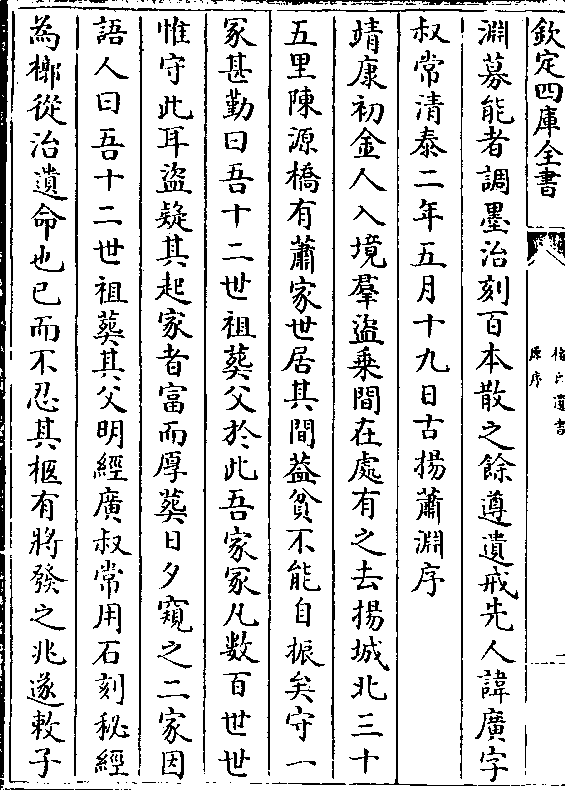 欽定四庫全書
褚氏遺書
原序
淵募能者調墨治刻百本散之餘遵遺戒先人諱廣字
叔常清泰二年五月十九日古揚蕭淵序
靖康初金人入境羣盜乗間在處有之去揚城北三十
五里陳源橋有蕭家世居其間葢貧不能自振矣守一
冢甚勤曰吾十二世祖葬父於此吾家冢凡數百世世
惟守此耳盜疑其起家者富而厚葬日夕窺之二家因
語人曰吾十二世祖葬其父明經廣叔常用石刻秘經
為槨從治遺命也已而不忍其柩有將發之兆遂敕子